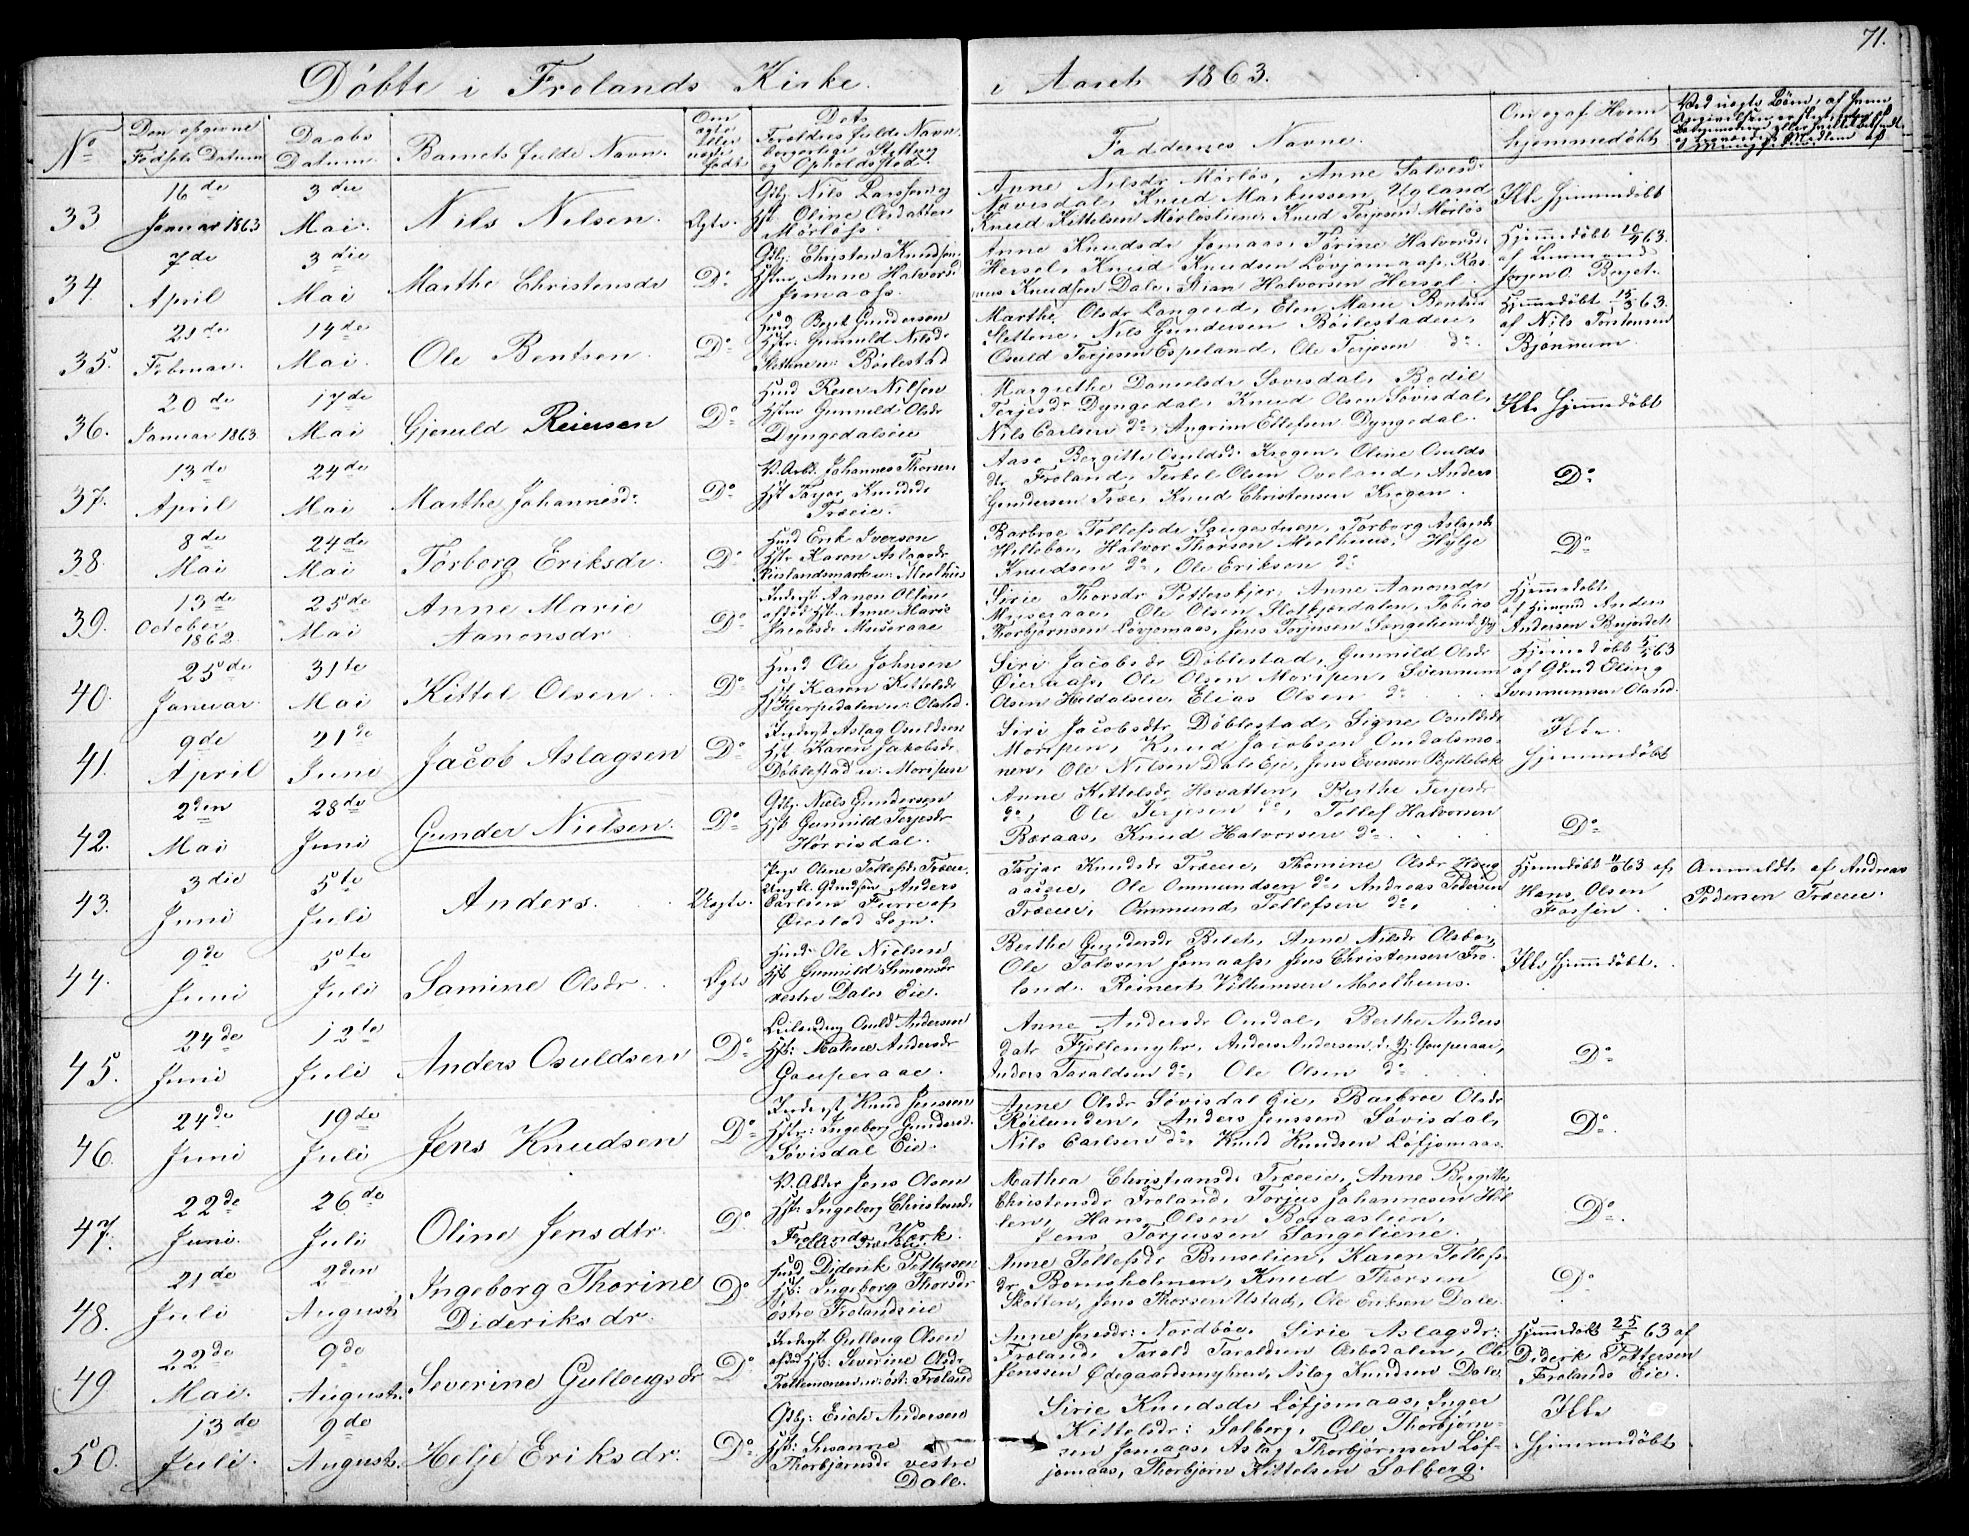 71.
Döbte i Frolands Kirke. i Aaret 1863.
No
Den opgivne Fødsels Datum
Daabs Datum
Barnets fulde Navn.
Om ægte eller uægte født
Dets Forældres fulde Navn, borgerlige Stilling og Opholdssted
Faddernes Navne.
Om og af Hvem hjemmedöbt
33
16de Januar 1863
3die Mai.
Nils Nilsen.
Ægte.
Gbg. Nils Larssen og
Hst. Oline Olsdatter
Mörlöss.
Anne Nilsdr Mörlös, Anne Salvesdr
Knud Markussen Ugland
Knud Kittelsen Mörlöslien, Knud Terjesen Mörlös
Ikke hjemmedöbt
34
7de April
3die Mai
Marthe Christensdr
Do
Gbg. Christen Knudsen
Hstru Anne Halvorsd
Jomaass.
Anne Knudsdr Jomaas, Torine Halvorsdr
Hersel, Knud Knudsen Lövjomaass, Ras
mus Knudsen Dale, Stian Halvorsen Hersel.
Hjemmedöbt 10/4 63.
af
Jörgen O. Berget.
35.
21de Februar.
14de Mai.
Ole Bentsen.
Do
Husd Bent Gundersen
Hstr. Gunnuld Nilsdr
Slettene u: Böilestad
Marthe Olsdr Langerd, Elen Marie Bentsdr
Slettene, Nils Gundersen Böilestadeie,
Osuld Terjesen Espeland, Ole Terjesen do.
Hjemmedöbt 15/3 63.
af Nils Torstensen
Bjönnum.
36.
20de Januar 1863
17de Mai
Gjeruld Reiersen
Do
Husd Reier Nilsen
Hstru Gunnuld Olsdr
Dyngedalseie
Margrethe Danielsdr Sovisdal, Bodil
Terjesdr Dyngedal, Knud Olsen Sövisdal,
Nils Carlsen do, Angrim Ellefsen Dyngedal
Ikke hjemmedöbt
37.
13de April
24de Mai
Marthe Johannesdr.
Do
V. Arbd. Johannes Thorsen
Hst Torjor Knudsdr
Træeie.
Aase Bergitte Osuldsd. Krogen, Oline Osulds
dr Froland, Terkel Olsen Oveland, Anders
Gundersen Træe, Knud Christensen Krogen.
Do
38.
8de Mai
24de Mai
Törborg Eriksdr.
Do
Husd Erik Iversen
Hstr Karen Aslagsdr
Rislandsmark u: Mælhus
Barbroe Tellefsdr Laugestuen, Torborg Aslagsdr
Hillebo, Halvor Thorsen Mielhuus, Hylje
Knudsen do, Ole Eriksen do
Do
39.
13de October 1862.
25de Mai
Anne Marie
Aanonsdr.
Do
Inderst Aanon Olsen
afdöd Hst. Anne Marie
Jacobsdr Museraae
Sirie Thorsdr Pottersbjer, Anne Aanonsdr
Museraae, Ole Olsen Slotbjerdalen, Tobias
Thorbjörnsen Lövjomaas, Jens Torjusen Songelien d. y.
Hjemmedöbt
af Husmand Anders
Andersen
40.
25de Januar.
31te Mai
Kittel Olsen
Do
Husd Ole Johnsen
Hst. Karen Kittelsdr
Hjerpedalen u: Olsbd.
Siri Jacobsdr Döblestad, Gunnild Olsdr
Öieraass, Ole Olsen Moripen, Svennum
Olsen Hildalseie, Elias Olsen do
Hjemmedöbt 5/5 63
af Gbmd Elling
Svennumsen Oland.
41.
9de April
21de Juni
Jacob Aslagsen
Do
Inderst Aslag Osuldsen
Hst. Karen Jakobsdr
Döblestad u: Moripen
Siri Jacobsdtr Döblestad, Signe Osuldsdr
Moripen, Knud Jacobsen Omdalsmo
nen, Ole Nilsen Dale Eje, Jens Evensen Bylleblek
Ikke
hjemmedöbt
42.
2den Mai
28de Juni
Gunder Nielsen.
Do
Gbg. Niels Gundersen
Hst Gunnild Terjesdr
Hörrisdal.
Anne Kittelsdr Hsvatten, Berthe Terjesdr
do, Ole Terjesen do, Tellef Halvorsen
Boraas, Knud Halvorsen do.
Do
43.
3die Juni
5te Juli
Anders.
Uægte.
Pige Oline Tellefsdr Træeie,
Ungk. Anders
Carlsen af
Öiestad Sogn.
Torjor Knudsdr Træeie, Thomine Olsdr Haug
aasseie, Ole Ommundsen do, Andreas Pedersen
Træeie, Ommund Tellefsen do,
Hjemmedöbt 11/6 63 af
Hans Olsen
Fossen.
Anmeldt af Andreas
Pedersen Træeie.
44.
9de Juni
5te Juli
Samine Olsdr.
Ægte
Husd. Ole Nielsen
Hst Gunnild Simonsdr
vestre Dales Eie.
Berthe Gundersdr Bilet, Anne Nilsdr Olsbo,
Ole Tolvsen Jomaass, Jens Christensen Fro
land. Reinert Villumsen Mielhuus.
Ikke hjemmedöbt.
45.
24de Juni
12te Juli
Anders Osuldsen
Do
Leilending Osuld Andersen
Hst: Malene Andersdr
Gauperaae.
Anne Andersdr Omdal, Berthe Anders
datr Fjellemyhr, Anders Andersen d. y. Gauperaae,
Anders Taraldsen do, Ole Olsen do
Do
46.
24de Juni
19de Juli
Jens Knudsen
Do
Inderst Knud Jensen
Hstr: Ingeborg Gundersd.
Sövisdal Eie.
Anne Olsdr Sövisdal Eie, Barbroe Olsdr
Röilunden, Anders Jenssen Sövisdal,
Nils Carlsen do, Knud Knudsen Löfjomaas.
Do
47.
22de Juni.
26de Juli
Oline Jensdtr.
Do.
V. Abdr Jens Olsen
Hst: Ingeborg Christensd.
Frolands Værk.
eller Træeie.
Mathea Christiansdr Træeie, Anne Bergitte
Christensdr Froland, Torjus Johannesen Hil
len, Hans Olsen Boraaslien,
Jens Torjussen Songeliene.
Do.
48.
21de Juli
2den August
Ingeborg Thorine
Dideriksdr.
Do
Husd Diderik Pettersen
Hst: Ingeborg Thorsdr
östre Frolandseie
Anne Tellefsdr Bruselien, Karen Tellefs
dr Bomsholmen, Knud Thorsen
Skotten, Jens Thorsen Ustad, Ole Eriksen Dale.
Do
49
22de Mai.
9de August.
Severine Gullougsdr
Do
Inderst Gulloug Olsen
afdöd Hst. Severine Olsdr
Trollemonen u: öst: Froland
Anne Jensdr: Nordböe, Sirie Aslagsdr:
Froland, Tarald Taraldsen Osbodalen, Ole
Jenssen Ödegaardsmyhren, Aslag Knudsen Dale.
Hjemmedöbt 25/5 63 af
Diderk Pettersen
Frolands Eie.
50.
13de Juli.
9de August.
Helje Eriksdr.
Do
Gbg: Erich Andersen
Hst: Susanne
Thorbjørnsdr vestre
Dale.
Sirie Knudsdr Löfjomaas, Inger
Kittelsdr: Solberg, Ole Thorbjørn-
sen Jomaas, Aslag Thorbjørnsen Löf-
jomaas, Thorbjørn Kittelsen Solberg.
Ikke
hjemmedöbt.